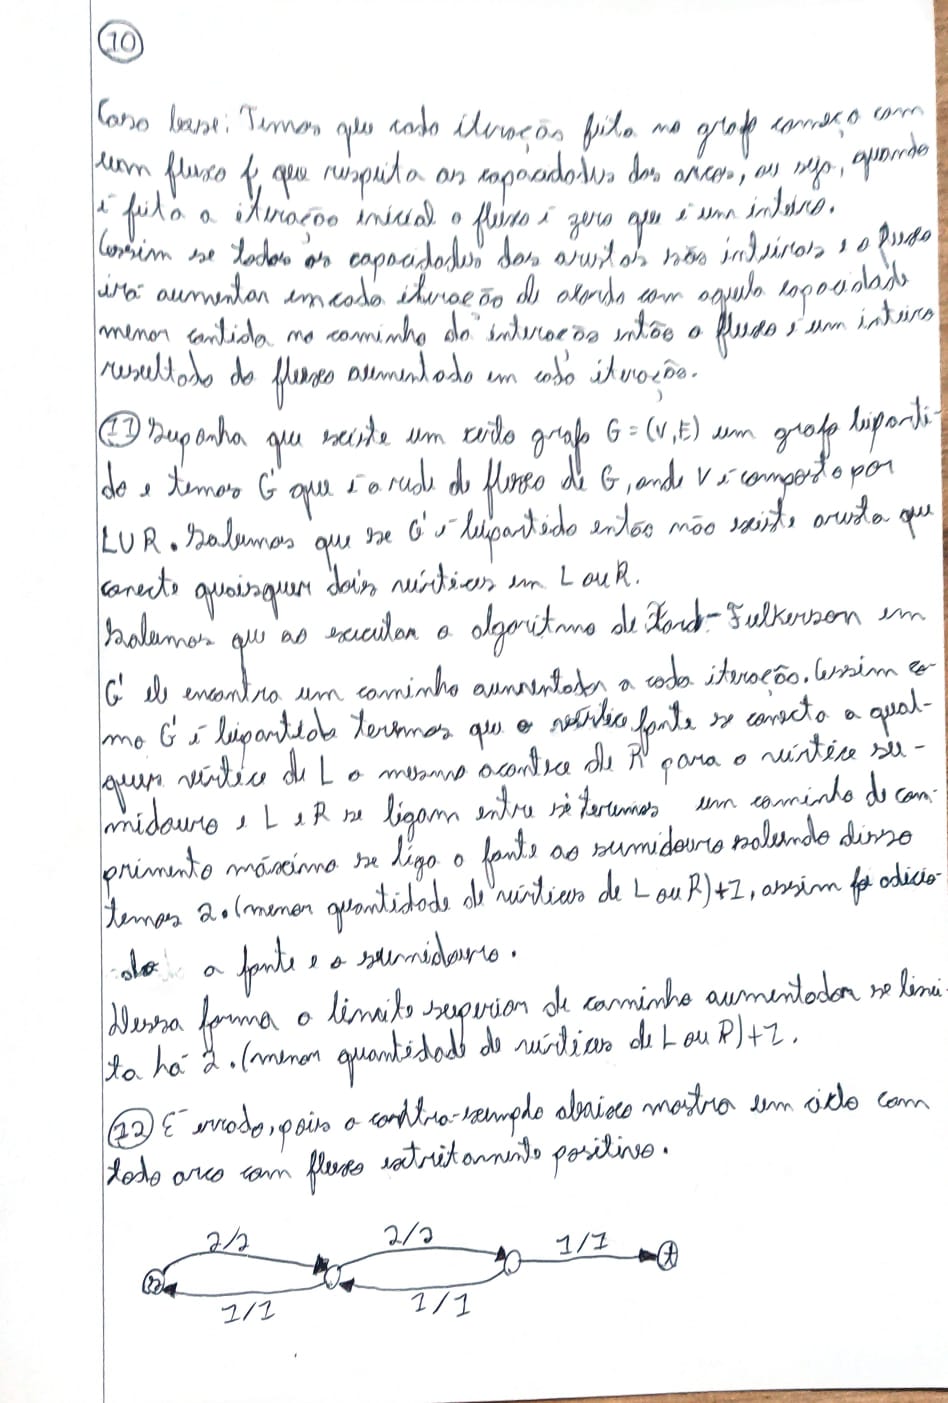 10
Caso base: Temos que cada iteração feita no grafo começa com
um fluxo f, que respeita as capacidades dos arcos, ou seja, quando
é feita a iteração inicial o fluxo é zero que é um inteiro.
Assim se todas as capacidades das arestas são inteiras e o fluxo
irá aumentar em cada iteração de acordo com aquela capacidade
menor contida no caminho da interação então o fluxo é um inteiro
resultado do fluxo aumentado em cada iteração.
11 Suponha que existe um certo grafo G = (V, E) um grafo biparti-
do e temos G' que é a rede de fluxo de G, onde V é composto por
LUR. Sabemos que se G' é bipartido então não existe aresta que
conecte quaisquer dois vértices em L ou R.
Sabemos que ao executar o algoritmo de Ford-Fulkerson em
G' ele encontra um caminho aumentador a cada iteração. Assim co-
mo G' é bipartido teremos que o vértice fonte se conecta a qual-
quer vértice de L o mesmo acontece de R para o vértice su-
midouro e L e R se ligam entre si teremos um caminho de com-
primento máximo se liga o fonte ao sumidouro sabendo disso
temos 2.(menor quantidade de vértices de L ou R)+1, assim foi adicio-
do a fonte e o sumidouro.
Dessa forma o limite superior de caminho aumentador se limi-
ta há 2.(menor quantidade de vértices de L ou R)+1.
12 É errado, pois o contra-exemplo abaixo mostra um ciclo com
todo arco com fluxo estritamente positivo.
2/2 2/2 1/1
s t
1/1 1/1